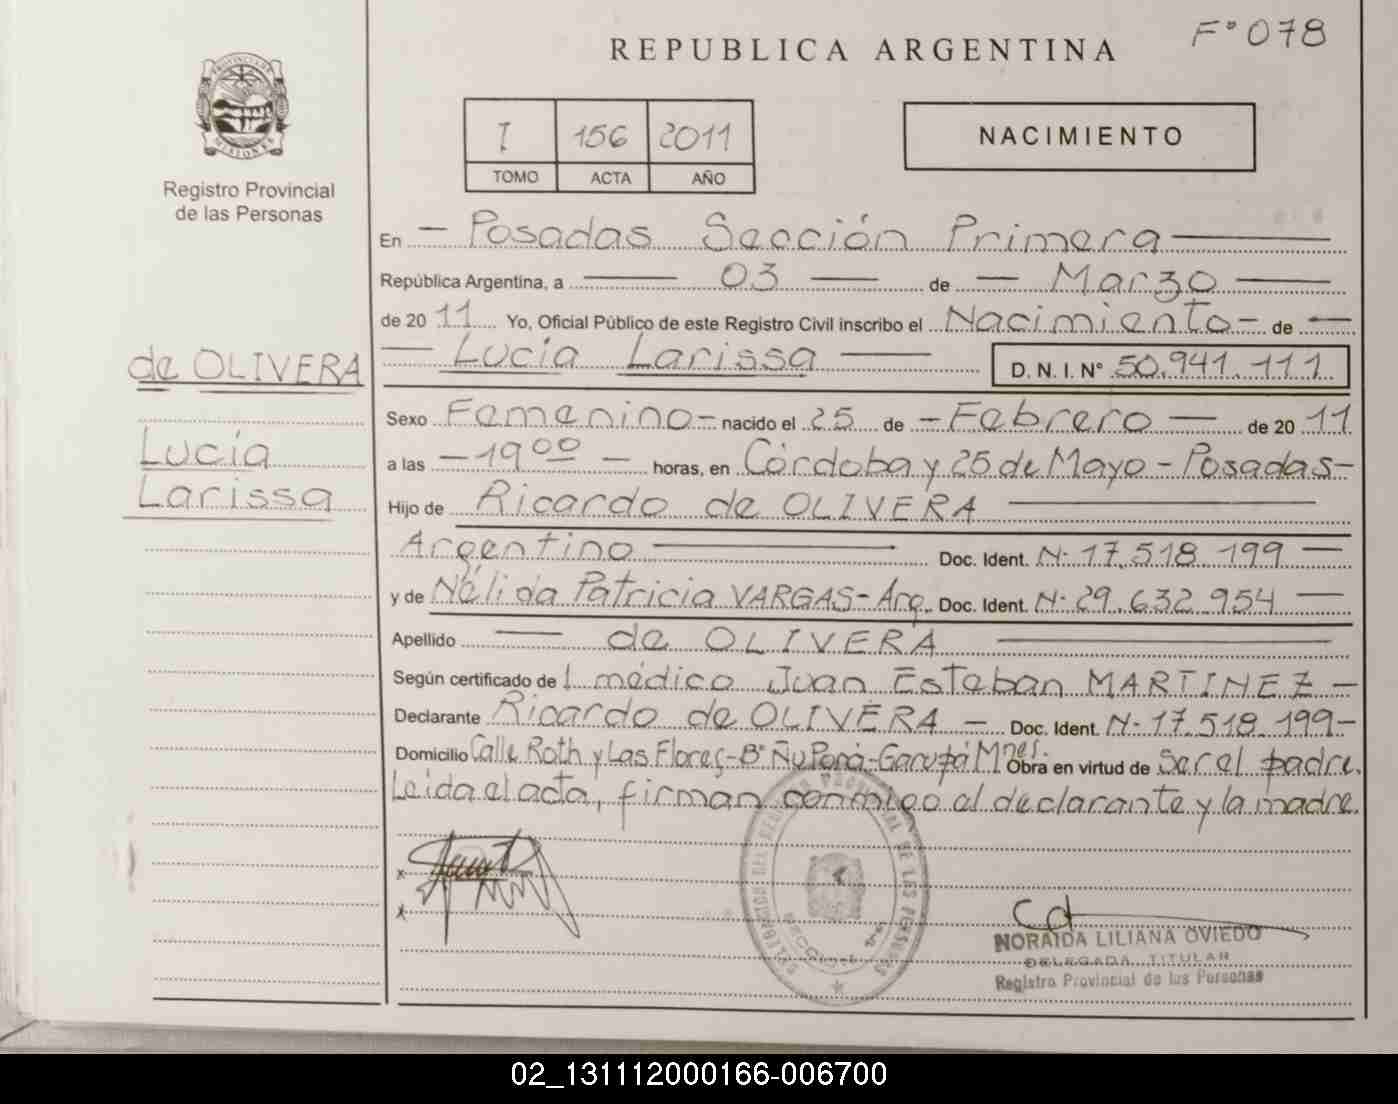 F° 078
REPUBLICA ARGENTINA
PROVINCIA DE MISIONES
Registro Provincial
de las Personas
I 156 2011
TOMO ACTA AÑO
NACIMIENTO
En - Posadas Sección Primera
República Argentina, a 03 de - Marzo
de 20 11 Yo, Oficial Público de este Registro Civil inscribo el Nacimiento - de -
Lucía Larissa D. N. I. N° 50.941.111
de OLIVERA
Lucía
Larissa
Sexo Femenino - nacido el 25 de - Febrero - de 20 11
a las - 19 00 - horas, en Córdoba y 25 de Mayo - Posadas -
Hijo de Ricardo de OLIVERA
Argentino Doc. Ident. N· 17.518.199 -
y de Nélida Patricia VARGAS - Arg. Doc. Ident. N· 29.632.954 -
Apellido - de OLIVERA
Según certificado de l médico Juan Esteban MARTINEZ -
Declarante Ricardo de OLIVERA - Doc. Ident. N· 17.518.199 -
Domicilio Calle Roth y Las Flores - B° Ñu Porá - Garupá Mnes. Obra en virtud de ser el padre.
Leida el acta, firman conmigo el declarante y la madre.
x
x
NORAIDA LILIANA OVIEDO
DELEGADA TITULAR
Registro Provincial de las Personas
02_131112000166-006700